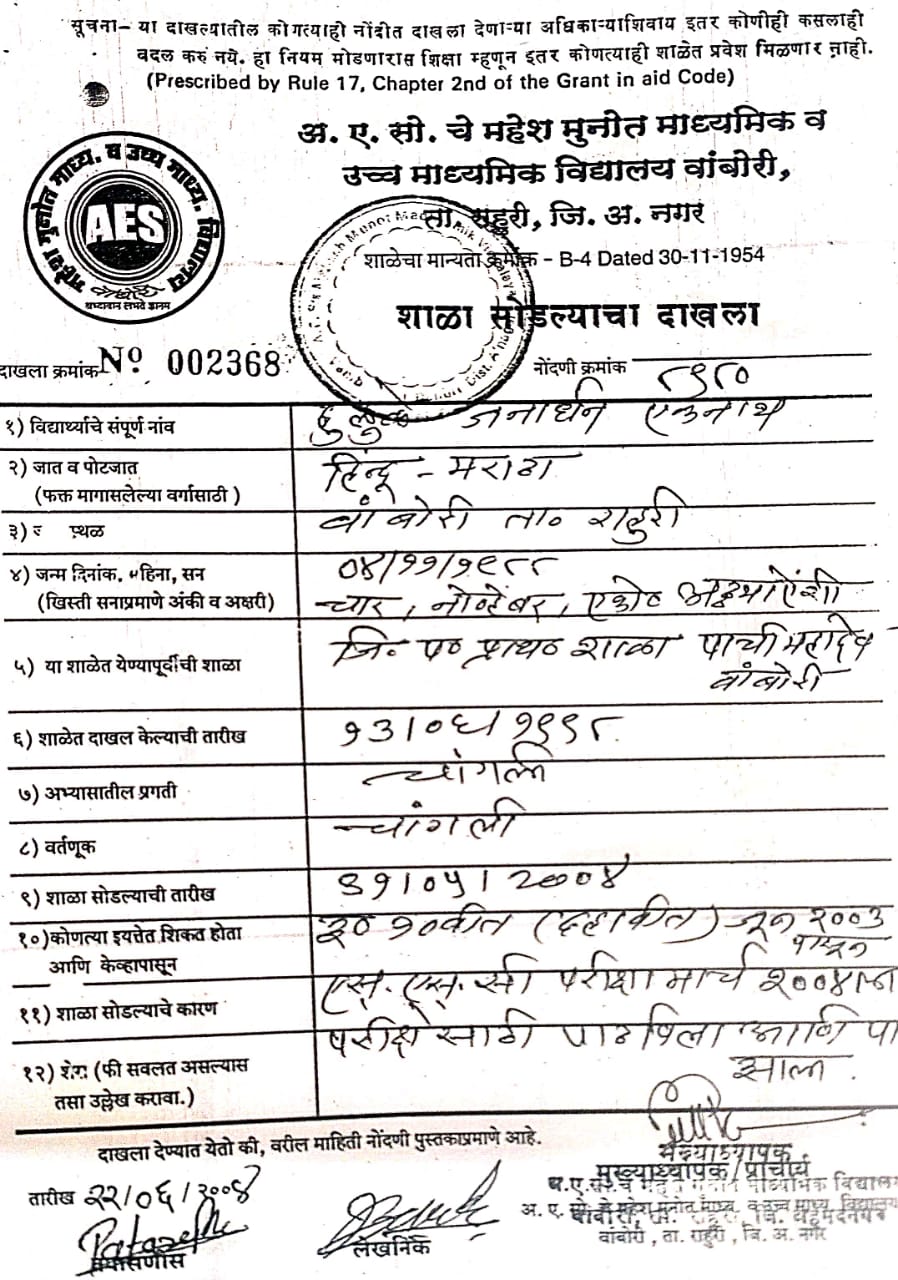 सूचना– या दाखल्यातील कोणत्याही नोंदीत दाखला देणाऱ्या अधिकाऱ्याशिवाय इतर कोणीही कसलाही
बदल करुं नये. हा नियम मोडणारास शिक्षा म्हणून इतर कोणत्याही शाळेत प्रवेश मिळणार नाही.
(Prescribed by Rule 17, Chapter 2nd of the Grant in aid Code)
अ. ए. सो. चे महेश मुनोत माध्यमिक व
उच्च माध्यमिक विद्यालय वांबोरी,
ता. राहुरी, जि. अ. नगर
महेश मुनोत माध्य. व उच्च माध्य. विद्यालय
AES
वांबोरी
श्रध्दावान लभते ज्ञानम
शाळेचा मान्यता क्रमांक – B-4 Dated 30-11-1954
शाळा सोडल्याचा दाखला
दाखला क्रमांक Nº 002368 नोंदणी क्रमांक ८९८०
१) विद्यार्थ्याचे संपूर्ण नांव जनार्धन एकनाथ
२) जात व पोटजात हिन्दू - मराठा
(फक्त मागासलेल्या वर्गासाठी )
३) स्थळ वांबोरी ता० राहुरी
४) जन्म दिनांक, महिना, सन ०४/११/१९८८
(खिस्ती सनाप्रमाणे अंकी व अक्षरी) चार, नोव्हेंबर, एकोण अठ्ठयाऐंशी
५) या शाळेत येण्यापूर्वीची शाळा जि० प० प्राथ० शाळा पाची महादेव
वांबोरी
६) शाळेत दाखल केल्याची तारीख १३/०६/१९९८
७) अभ्यासातील प्रगती चांगली
८) वर्तणूक चांगली
९) शाळा सोडल्याची तारीख ३१/०५/२००४
१०)कोणत्या इयत्तेत शिकत होता इ० १०वीत (दहावीत) जून २००३
आणि केव्हापासून पासून
११) शाळा सोडल्याचे कारण एस्.एस्.सी परीक्षा मार्च २००४च्या
परीक्षेसाठी पाठविला आणि पास
१२) शेरा (फी सवलत असल्यास झाला.
तसा उल्लेख करावा.)
दाखला देण्यात येतो की, वरील माहिती नोंदणी पुस्तकाप्रमाणे आहे.
तारीख २२/०६/२००४
तपासणीस
लेखनिक
मुख्याध्यापक
मुख्याध्यापक/प्राचार्य
अ. ए. सो. चे महेश मुनोत माध्य. व उच्च माध्य. विद्यालय
वांबोरी, ता. राहुरी, जि. अ. नगर